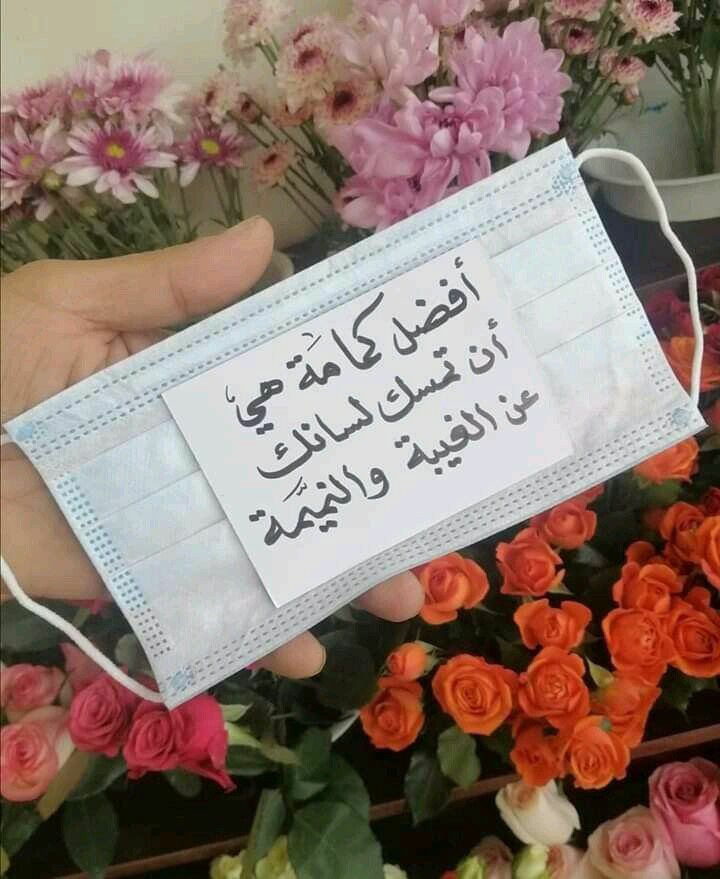 أفضل كمامَة هي
أن تمسك لسانك
عن الغيبة والنميمَّة